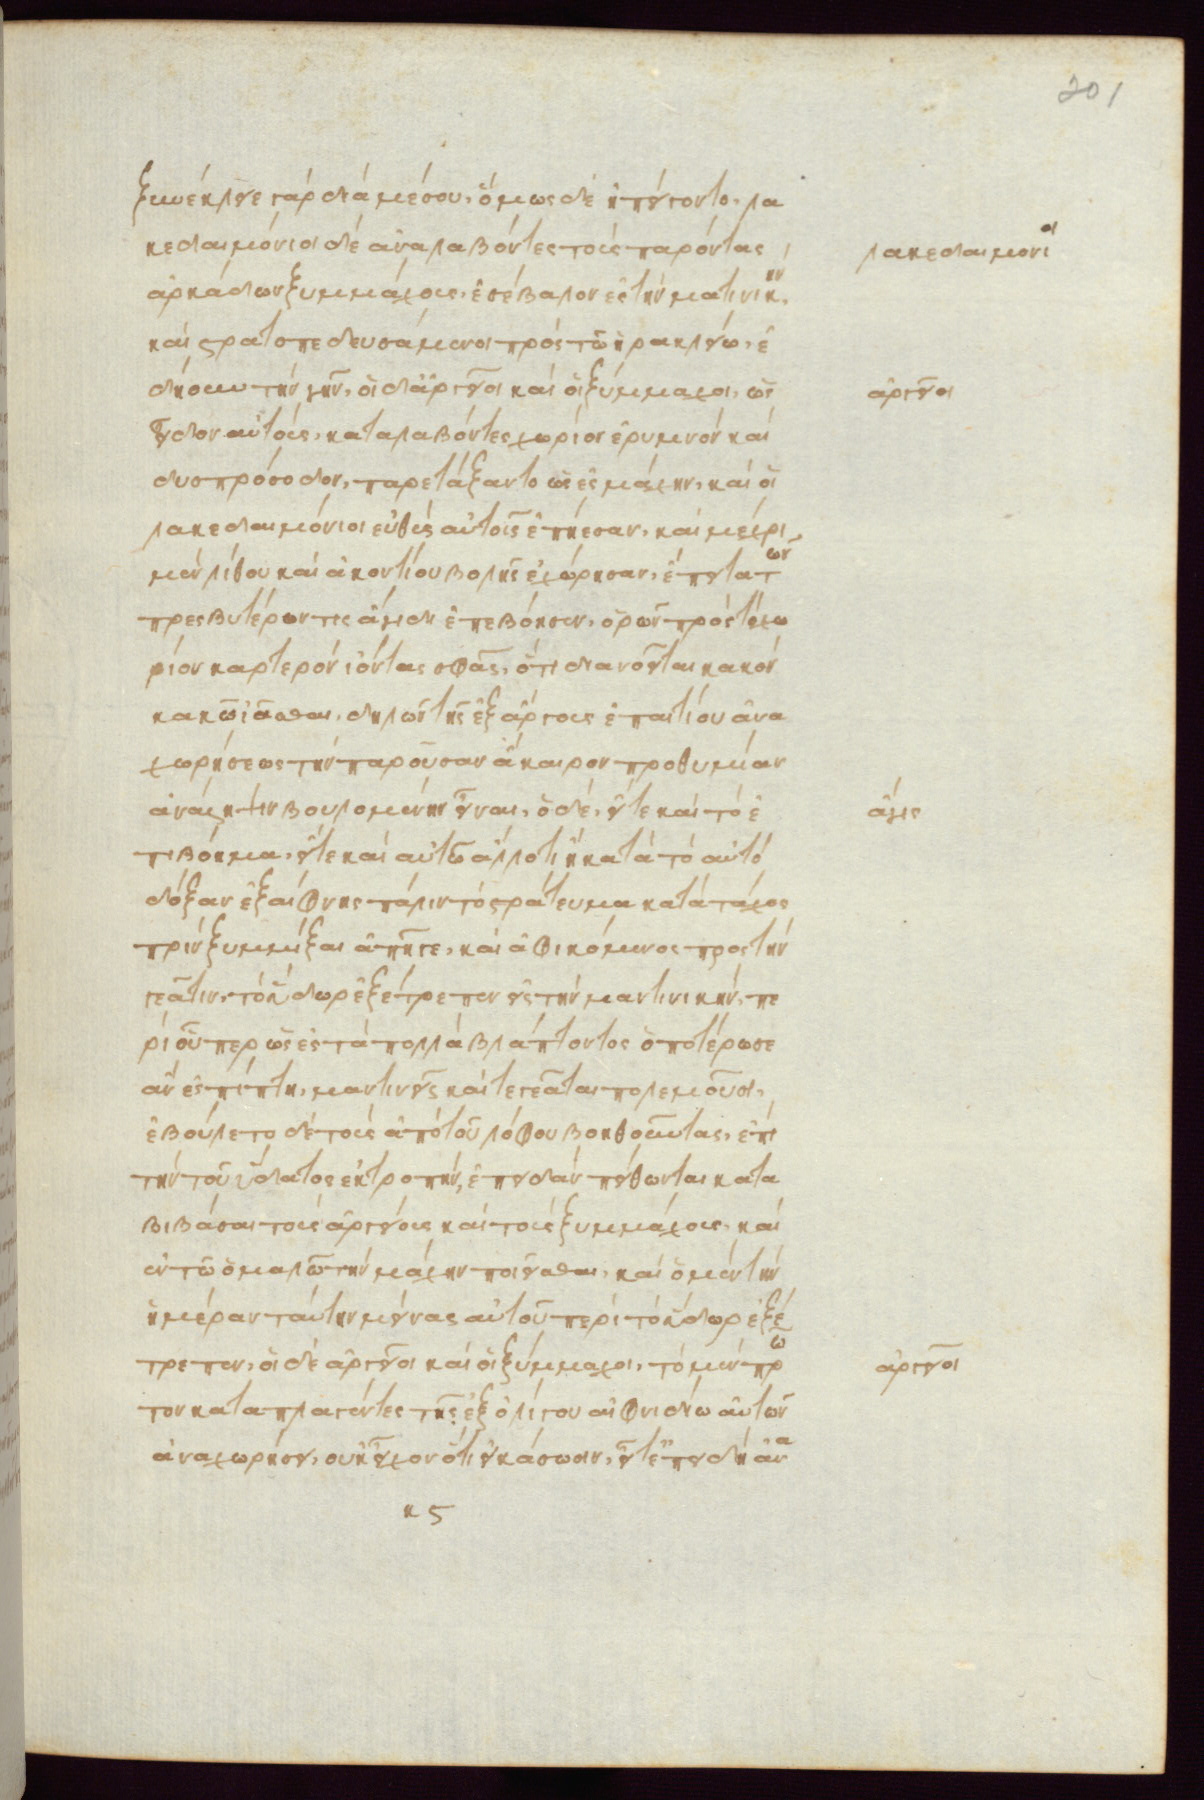 201
ξυνέκλειε γάρ διά μέσου, ὅμως δέ ἠπείγοντο. λα
κεδαιμόνιοι δέ ἀναλαβόντες τούς παρόντας
λακεδαιμόνιοι
ἀρκάδων ξυμμάχους, ἐσέβαλον ἐς τήν ματινικήν,
καί στρατοπεδευσάμενοι πρός τῶ ἡρακλείω, ἐ
δήουν τήν γῆν, οἱ δ' ἀργεῖοι καί οἱ ξύμμαχοι, ὡς
ἀργεῖοι
εἶδον αὐτούς, καταλαβόντες χωρίον ἐρυμνόν καί
δυσπρόσοδον, παρετάξαντο ὡς ἐς μάχην, καί οἱ
λακεδαιμόνιοι εὐθύς αὐτοῖς ἐπήεσαν, καί μέχρι
μέν λίθου καί ἀκοντίου βολῆς ἐχώρησαν, ἔπειτα τῶν
πρεσβυτέρων τις ἄγιδι ἐπεβόησεν, ὁρῶν πρός τό χω
ρίον καρτερόν ἰόντας σφᾶς, ὅτι διανοεῖται κακόν
κακῶ ἰᾶσθαι, δηλῶν τῆς ἐξ ἄργους ἐπαιτίου ἀνα
χωρήσεως τήν παροῦσαν ἄκαιρον προθυμίαν
ἀνάληψιν βουλομένην εἶναι, ὁ δέ, εἴτε καί τό ἐ
ἄγις
πιβόημα, εἴτε καί αὐτῶ ἄλλο τι ἤ κατά τό αὐτό
δόξαν ἐξαίφνης πάλιν τό στράτευμα κατά τάχος
πρίν ξυμμίξαι ἀπῆγε, καί ἀφικόμενος πρός τήν
τεγεᾶτιν, τό ὕδωρ ἐξέτρεπεν εἰς τήν μαντινικήν, πε
ρί οὗπερ ὡς ἐς τά πολλά βλάπτοντος ὁποτέρωσε
ἄν ἐσπίπτη, μαντινεῖς καί τεγεᾶται πολεμοῦσι,
ἐβούλετο δέ τούς ἀπό τοῦ λόφου βοηθοῦντας, ἐπί
τήν τοῦ ὕδατος ἐκτροπήν, ἐπειδάν πύθωνται κατα
βιβάσαι τούς ἀργείους καί τούς ξυμμάχους, καί
ἐν τῶ ὁμαλῶ τήν μάχην ποιεῖσθαι, καί ὁ μέν τήν
ἡμέραν ταύτην μείνας αὐτοῦ περί τό ὕδωρ ἐξέ
τρεπεν, οἱ δέ ἀργεῖοι καί οἱ ξύμμαχοι, τό μέν πρῶ
ἀργεῖοι
τον καταπλαγέντες τῆς ἐξ ὀλίγου αἰφνιδίω αὐτῶν
ἀναχωρήσει, οὐκ εἶχον ὅτι εἰκάσωσιν, εἶτ' ἐπειδή ἀνα
κ ς